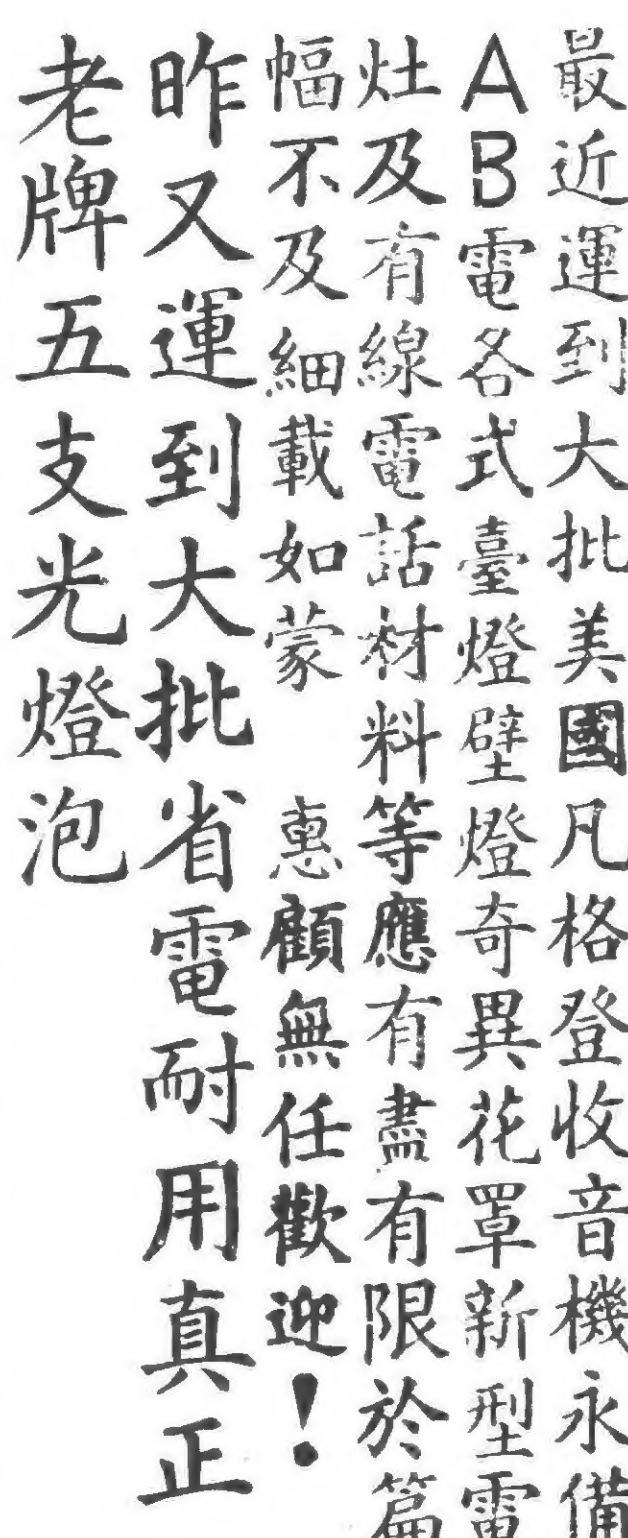 最近運到大批美國凡格登收音機永備
AB電各式臺燈壁燈奇異花罩新型電
灶及有線電話材料等應有盡有限於篇
幅不及細載如蒙　惠顧無任歡迎！
昨又運到大批省電耐用真正
老牌五支光燈泡